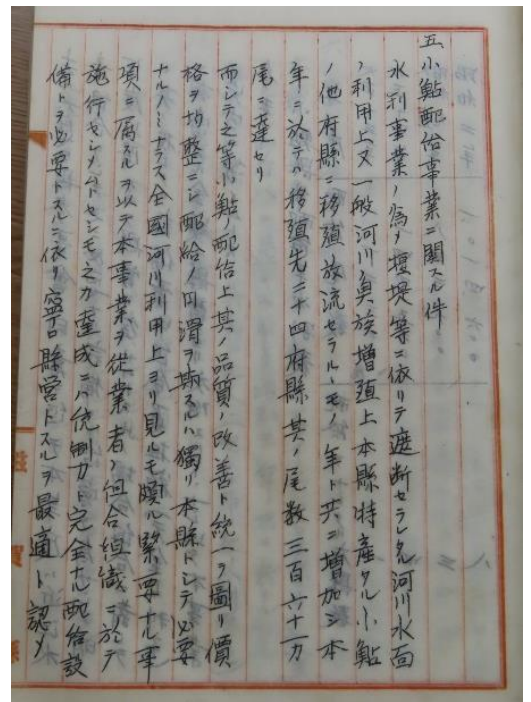 五、小鮎配給事業ニ関スル件
水利事業ノ為メ堰堤等ニ依リテ遮断セラレタル河川水面
ノ利用上又一般河川魚族増殖上本縣特産タル小鮎
ノ他府縣ニ移殖放流セラルヽモノ年ト共ニ増加シ本
年ニ於テハ移殖先二十四府縣其ノ尾数三百六十一万
尾ニ達セリ
而シテ之等小鮎ノ配給上其ノ品質ノ改善ト統一ヲ圖リ價
格ヲ切整ニシ配給ノ円滑ヲ期スルハ獨リ本縣トシテ必要
ナルノミナラス全國河川利用上ヨリ見ルモ頗ル緊要ナル事
項ニ属スルヲ以テ本事業ヲ從業者ノ組合組織ニ於テ
施行セシメムトセシモ之カ達成ニハ統制力ト完全ナル配給設
備トヲ必要トスルニ依リ寧ロ縣営トスルヲ最適ト認メ
滋賀縣